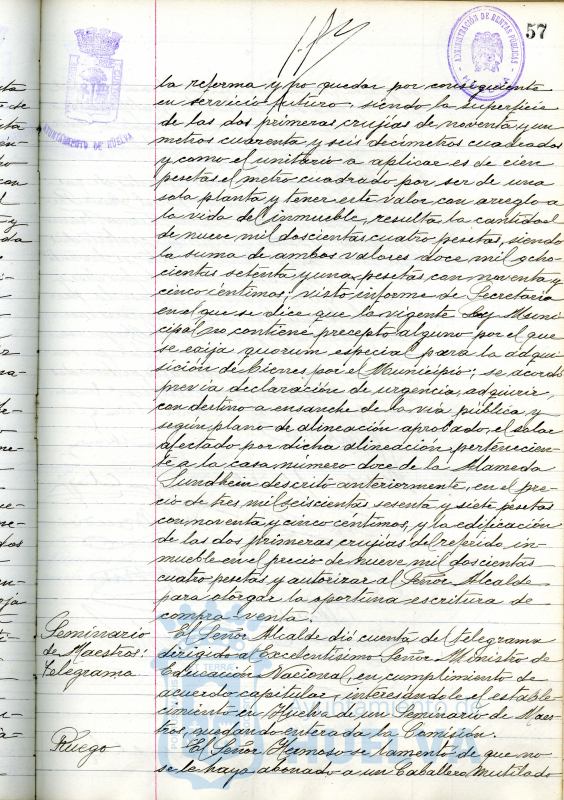 57
ADMINISTRACIÓN DE RENTAS PÚBLICAS
AYUNTAMIENTO DE HUELVA
la reforma y no quedar por consiguiente
en servicio futuro, siendo la superficie
de las dos primeras crujías de noventa y un
metros cuarenta y seis decímetros cuadrados
y como el unitario a aplicar es de cien
pesetas el metro cuadrado por ser de una
sola planta y tener este valor con arreglo a
la vida del inmueble, resulta la cantidad
de nueve mil doscientas cuatro pesetas, siendo
la suma de ambos valores doce mil ocho-
cientas setenta y una pesetas con noventa y
cinco céntimos; visto informe de Secretaría
en el que se dice que la vigente Ley Muni-
cipal no contiene precepto alguno por el que
se exija quorum especial para la adqui-
sición de bienes por el Municipio; se acordó
previa declaración de urgencia, adquirir,
con destino a ensanche de la vía pública y
según plano de alineación aprobado, el solar
afectado por dicha alineación, pertenecien-
te a la casa numero doce de la Alameda
Sundheim descrito anteriormente, en el pre-
cio de tres mil seiscientas sesenta y siete pesetas
con noventa y cinco céntimos, y la edificación
de las dos primeras crujías del referido in-
mueble en el precio de nueve mil doscientas
cuatro pesetas y autorizar al Señor Alcalde
para otorgar la oportuna escritura de
compra-venta.
Seminario
de Maestros:
Telegrama
El Señor Alcalde dió cuenta de telegrama
dirigido al Excelentísimo Señor Ministro de
Educación Nacional, en cumplimiento de
acuerdo capitular, interesándole el estable-
cimiento en Huelva de un Seminario de Maes-
tros, quedando enterada la Comisión.
Ruego
El Señor Hermoso se lamentó de que no
se le haya abonado a un Caballero Mutilado
Ayuntamiento de
HUELVA